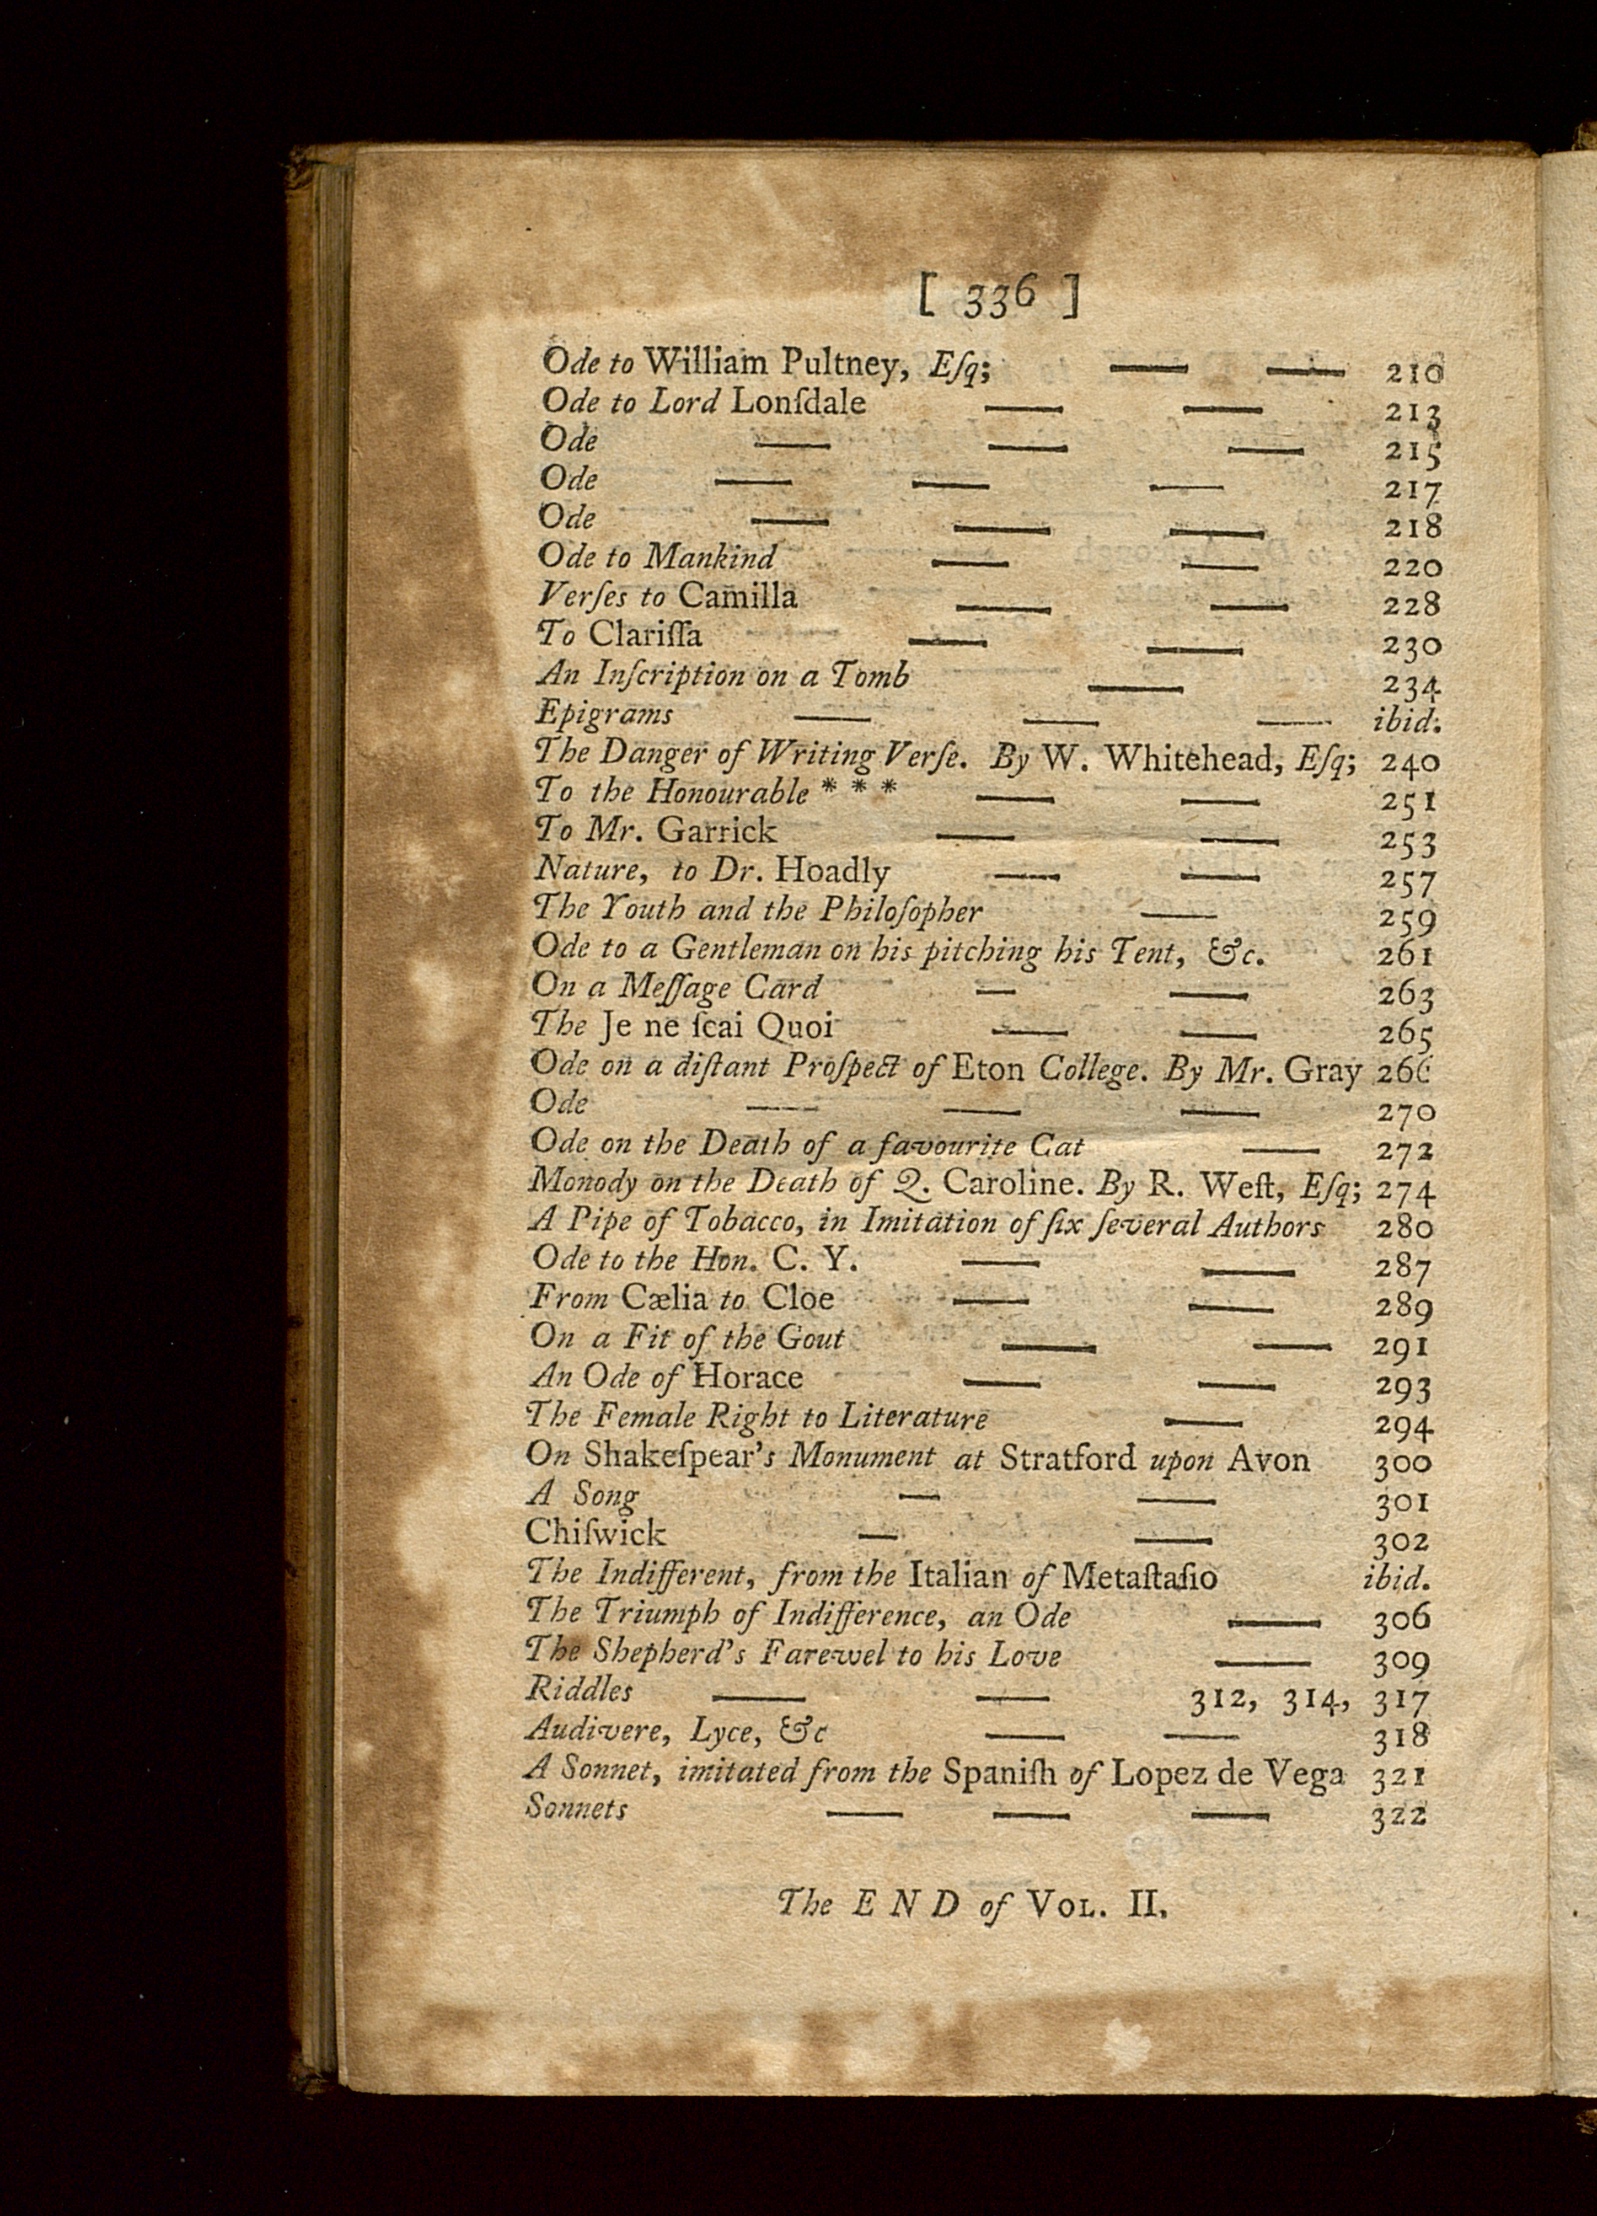 [ 336 ]
Ode to William Pultney, Eſq; — — 210
Ode to Lord Lonſdale — — 213
Ode — — — 215
Ode — — — 217
Ode — — — 218
Ode to Mankind — — 220
Verſes to Camilla — — 228
To Clariſſa — — 230
An Inſcription on a Tomb — 234
Epigrams — — — ibid.
The Danger of Writing Verſe. By W. Whitehead, Eſq; 240
To the Honourable * * * — — 251
To Mr. Garrick — — 253
Nature, to Dr. Hoadly — — 257
The Youth and the Philoſopher — 259
Ode to a Gentleman on his pitching his Tent, &c. 261
On a Meſſage Card — — 263
The Je ne ſcai Quoi — — 265
Ode on a diſtant Proſpect of Eton College. By Mr. Gray 266
Ode — — — 270
Ode on the Death of a favourite Cat — 272
Monody on the Death of Q. Caroline. By R. Weſt, Eſq; 274
A Pipe of Tobacco, in Imitation of ſix ſeveral Authors 280
Ode to the Hon. C. Y. — — 287
From Cælia to Cloe — — 289
On a Fit of the Gout — — 291
An Ode of Horace — — 293
The Female Right to Literature — 294
On Shakeſpear's Monument at Stratford upon Avon 300
A Song — — 301
Chiſwick — — 302
The Indifferent, from the Italian of Metaſtaſio ibid.
The Triumph of Indifference, an Ode — 306
The Shepherd's Farewel to his Love — 309
Riddles — — 312, 314, 317
Audivere, Lyce, &c — — 318
A Sonnet, imitated from the Spaniſh of Lopez de Vega 321
Sonnets — — — 322
The END of VOL. II.